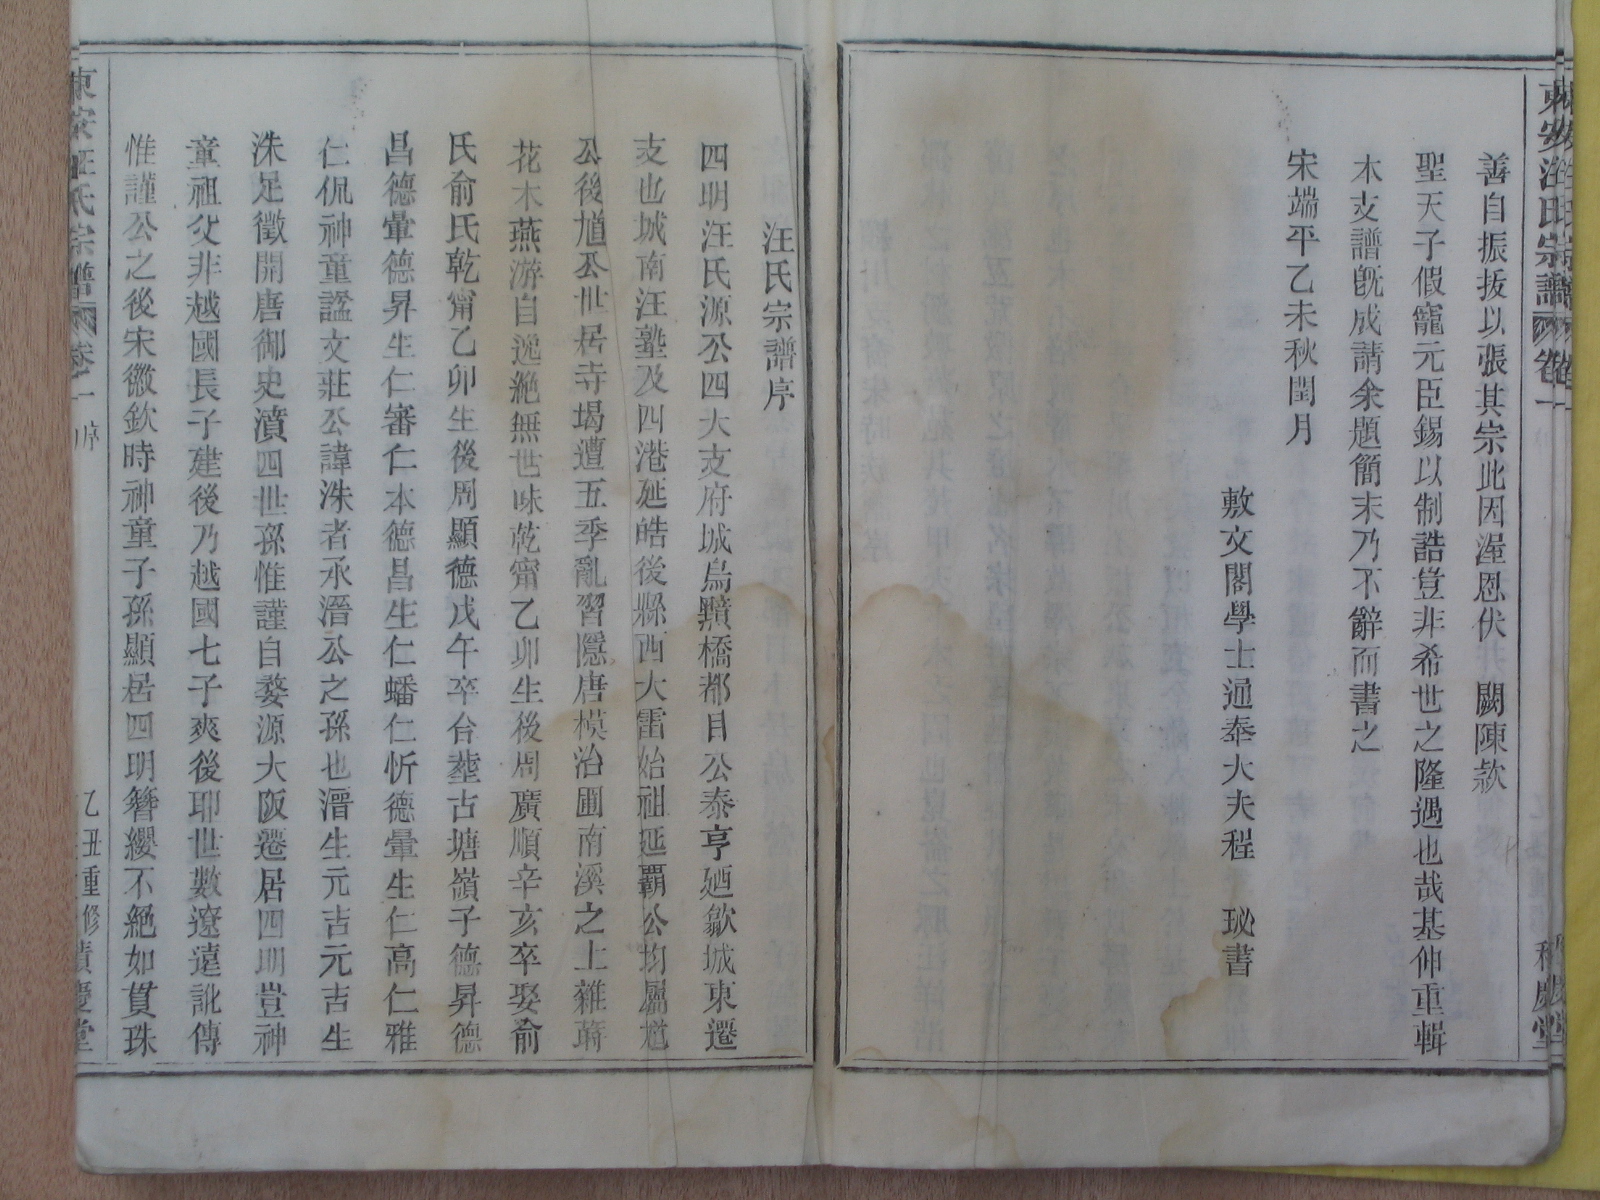 東安汪氏宗譜 卷一
善自振拔以張其宗此因渥恩伏井闕陳款
聖天子假寵元臣錫以制誥豈非希世之隆遇也哉基仲重輯
木支譜旣成請余題簡末乃不辭而書之
宋端平乙未秋閏月
敷文閣學士通奉大夫程 珌書
汪氏宗譜序
四明汪氏源公四大支府城烏黱橋都目公泰亨廼歙城東遷
支也城南汪塾及四港延皓後縣西大雷始祖延覇公均屬馗
公後馗公世居寺塌遭五季亂習隱唐模治圃南溪之上雜蒔
花木燕游自逸絶無世味乾甯乙卯生後周廣順辛亥卒娶俞
氏俞氏乾甯乙卯生後周顯德戊午卒合塟古塘嶺子德昇德
昌德暈德昇生仁審仁本德昌生仁蟠仁忻德暈生仁高仁雅
仁侃神童謚文莊公諱洙者承湣公之孫也湣生元吉元吉生
洙足徵開唐御史濆四世孫惟謹自婺源大阪遷居四明豈神
童祖父非越國長子建後乃越國七子爽後耶世數遼遠訛傳
惟謹公之後宋徽欽時神童子孫顯居四明簪纓不絶如貫珠
東安汪氏宗譜 卷一 序 乙丑重修 積慶堂